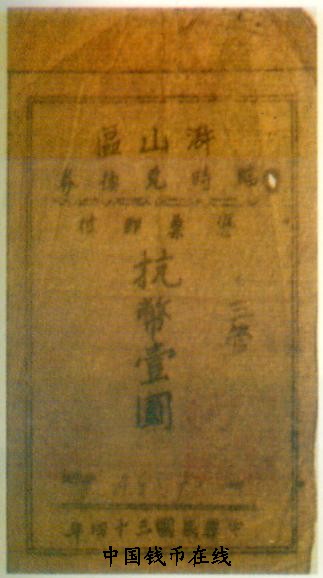 滸山區
臨時兌換券
憑票即付
抗幣壹圓
中華民國三十四年
中国钱币在线